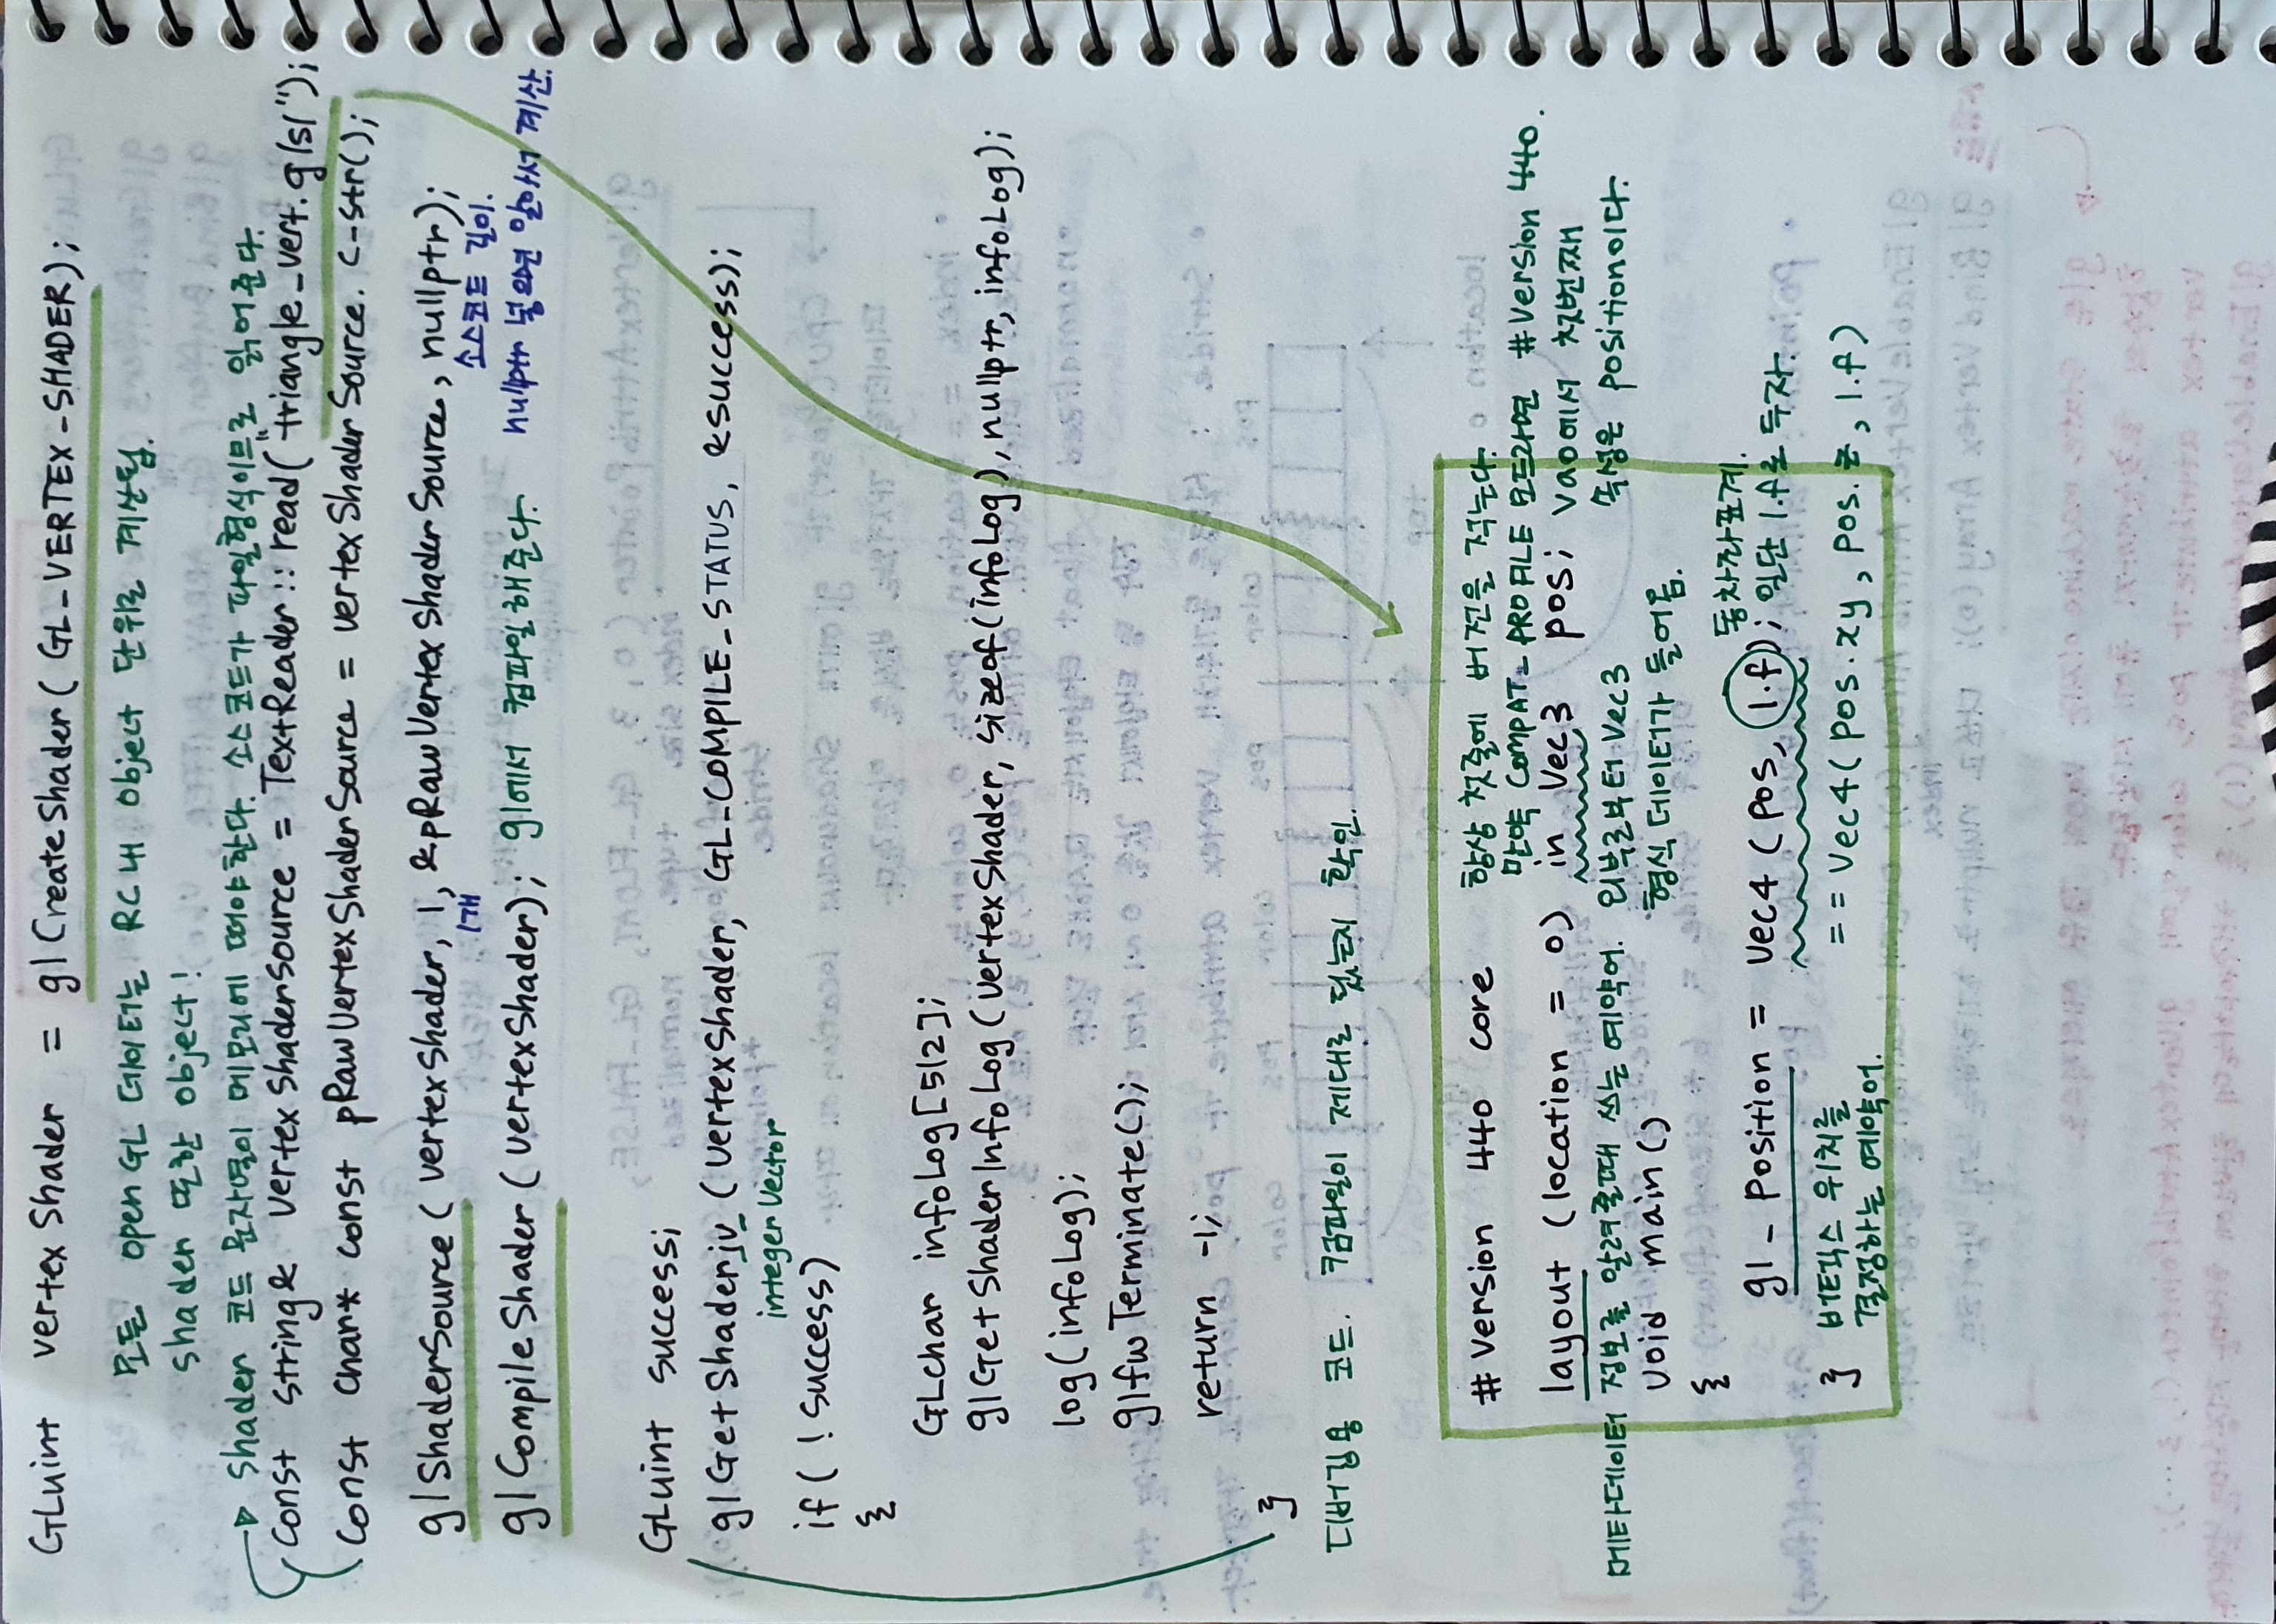 GLuint vertexShader = glCreateShader(GL_VERTEX_SHADER);
모든 openGL 데이터는 RC내 object 단위로 계산됨.
shader 또한 object!
shader 코드 문자열이 메모리에 떠야한다. 소스코드가 파일형식이므로 읽어준다.
const string& vertexShaderSource = TextReader::read("triangle_vert.glsl");
const char* const pRawVertexShaderSource = vertexShaderSource.c_str();
glShaderSource(vertexShader, 1, &pRawVertexShaderSource, nullptr);
1개 소스코드 길이.
glCompileShader(vertexShader); gl에서 컴파일해준다. nullptr 넣으면 알아서 계산.
GLuint success;
glGetShaderiv(vertexShader, GL_COMPILE_STATUS, &success);
integer vector
if(!success)
{
GLchar infoLog[512];
glGetShaderInfoLog(vertexShader, sizeof(infoLog), nullptr, infoLog);
log(infoLog);
glfwTerminate();
return -1;
}
디버깅용 코드. 컴파일이 제대로 됐는지 확인.
#version 440 core 항상 첫줄에 버전을 적는다.
만약 COMPAT_PROFILE 모드라면 #version 440.
layout (location = 0) in vec3 pos; vao에서 첫번째
메타데이터 정보를 알려줄때 쓰는 예약어. 외부로부터 vec3 속성은 position이다.
void main() 형식 데이터가 들어옴.
{
동차좌표계.
gl_position = vec4(pos, 1.f); 일단 1.f로 두자.
} 버텍스 위치를 == vec4(pos.xy, pos.z, 1.f)
결정하는 예약어.